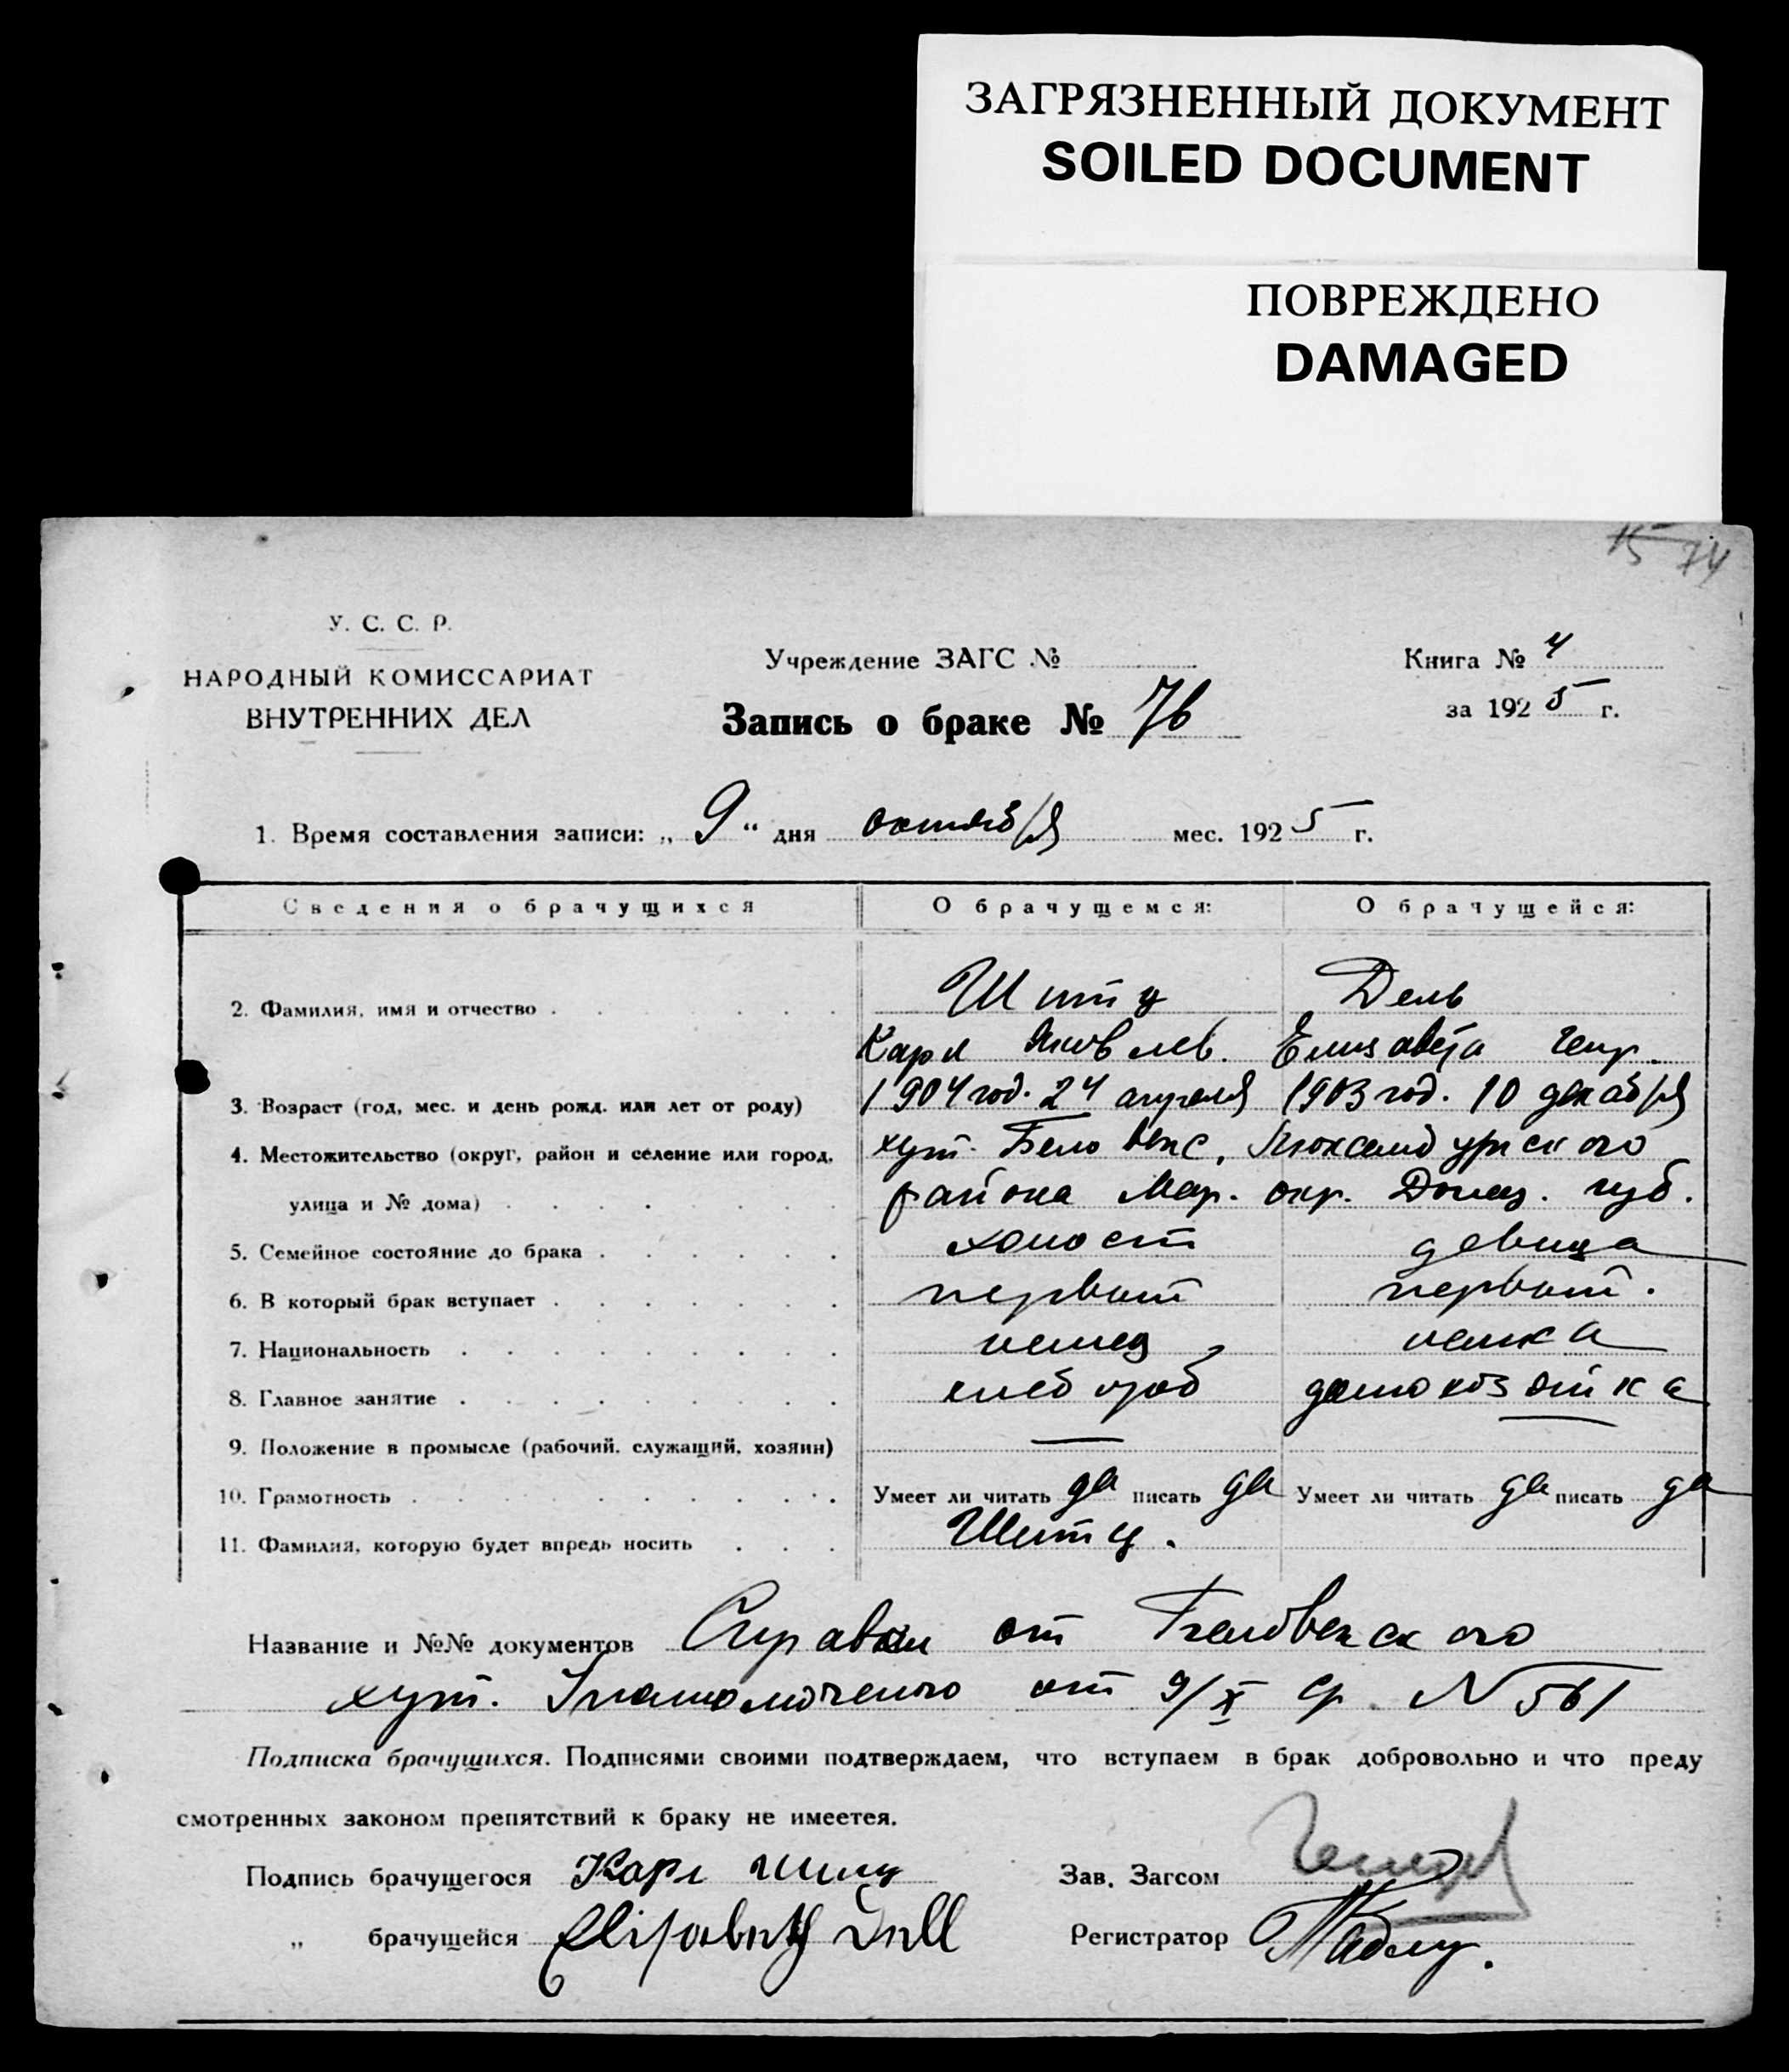 ЗАГРЯЗНЕННЫЙ ДОКУМЕНТ
SOILED DOCUMENT
ПОВРЕЖДЕНО
DAMAGED
15 74
У. С. С. Р.
НАРОДНЫЙ КОМИССАРИАТ
ВНУТРЕННИХ ДЕЛ
Учреждение ЗАГС №
Запись о браке № 76
Книга № 4
за 1925 г.
1. Время составления записи: „ 9 “ дня октября мес. 1925 г.
Сведения о брачущихся О брачущемся: О брачущейся:
2. Фамилия, имя и отчество Шитц Дель
Карл Яковлев. Елизавета Генр.
3. Возраст (год, мес. и день рожд. или лет от роду) 1904 год. 24 апреля 1903 год. 10 декабря
4. Местожительство (округ, район и селение или город, хут. Беловеж, Люксембургского
улица и № дома) района Мар. окр. Донец. губ.
5. Семейное состояние до брака холост девица
6. В который брак вступает первый первый.
7. Национальность немец немка
8. Главное занятие хлебороб домохозяйка
9. Положение в промысле (рабочий, служащий, хозяин) —
10. Грамотность Умеет ли читать да писать да Умеет ли читать да писать да
11. Фамилия, которую будет впредь носить Шитц.
Название и №№ документов Справки от Беловежского
хут. Уполномоченого от 9/X ср. N 561
Подписка брачущихся. Подписями своими подтверждаем, что вступаем в брак добровольно и что преду
смотренных законом препятствий к браку не имеется.
Подпись брачущегося Карл Шитц Зав. Загсом
„ брачущейся Elisabeth Dell Регистратор